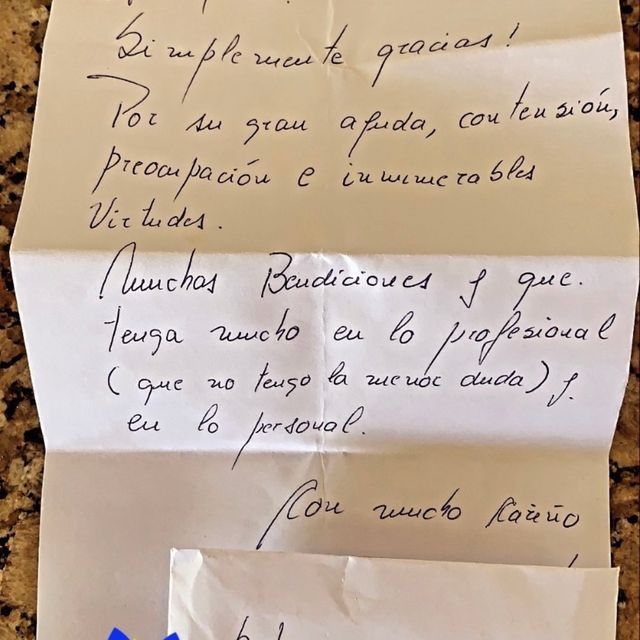 Simplemente gracias!
Por su gran ayuda, contensión,
preocupación e innumerables
Virtudes.
Muchas Bendiciones y que.
tenga mucho en lo profesional
(que no tengo la menor duda) y.
en lo personal.
Con mucho Cariño